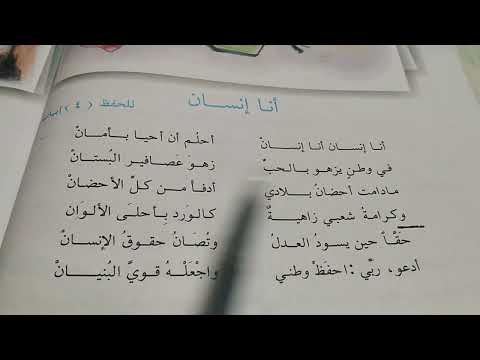 أنا إنسان للحفظ (٤) أبيات
أنا إنسان أنا إنسانْ أحلُم أن أحيا بأمانْ
في وطنٍ يزهو بالحبْ زهوَ عَصافيرِ البُستانْ
مادامت أحضانُ بلادي أدفأ من كلِّ الأحضانْ
وكرامةُ شعبي زاهيةٌ كالوَرد بأحلَى الألوَان
حقّاً حين يسودُ العدلُ وتُصَانُ حقوقُ الإنسانْ
أدعو، ربّي :احفَظْ وطني واجْعَلْهُ قويَّ البُنيَانْ